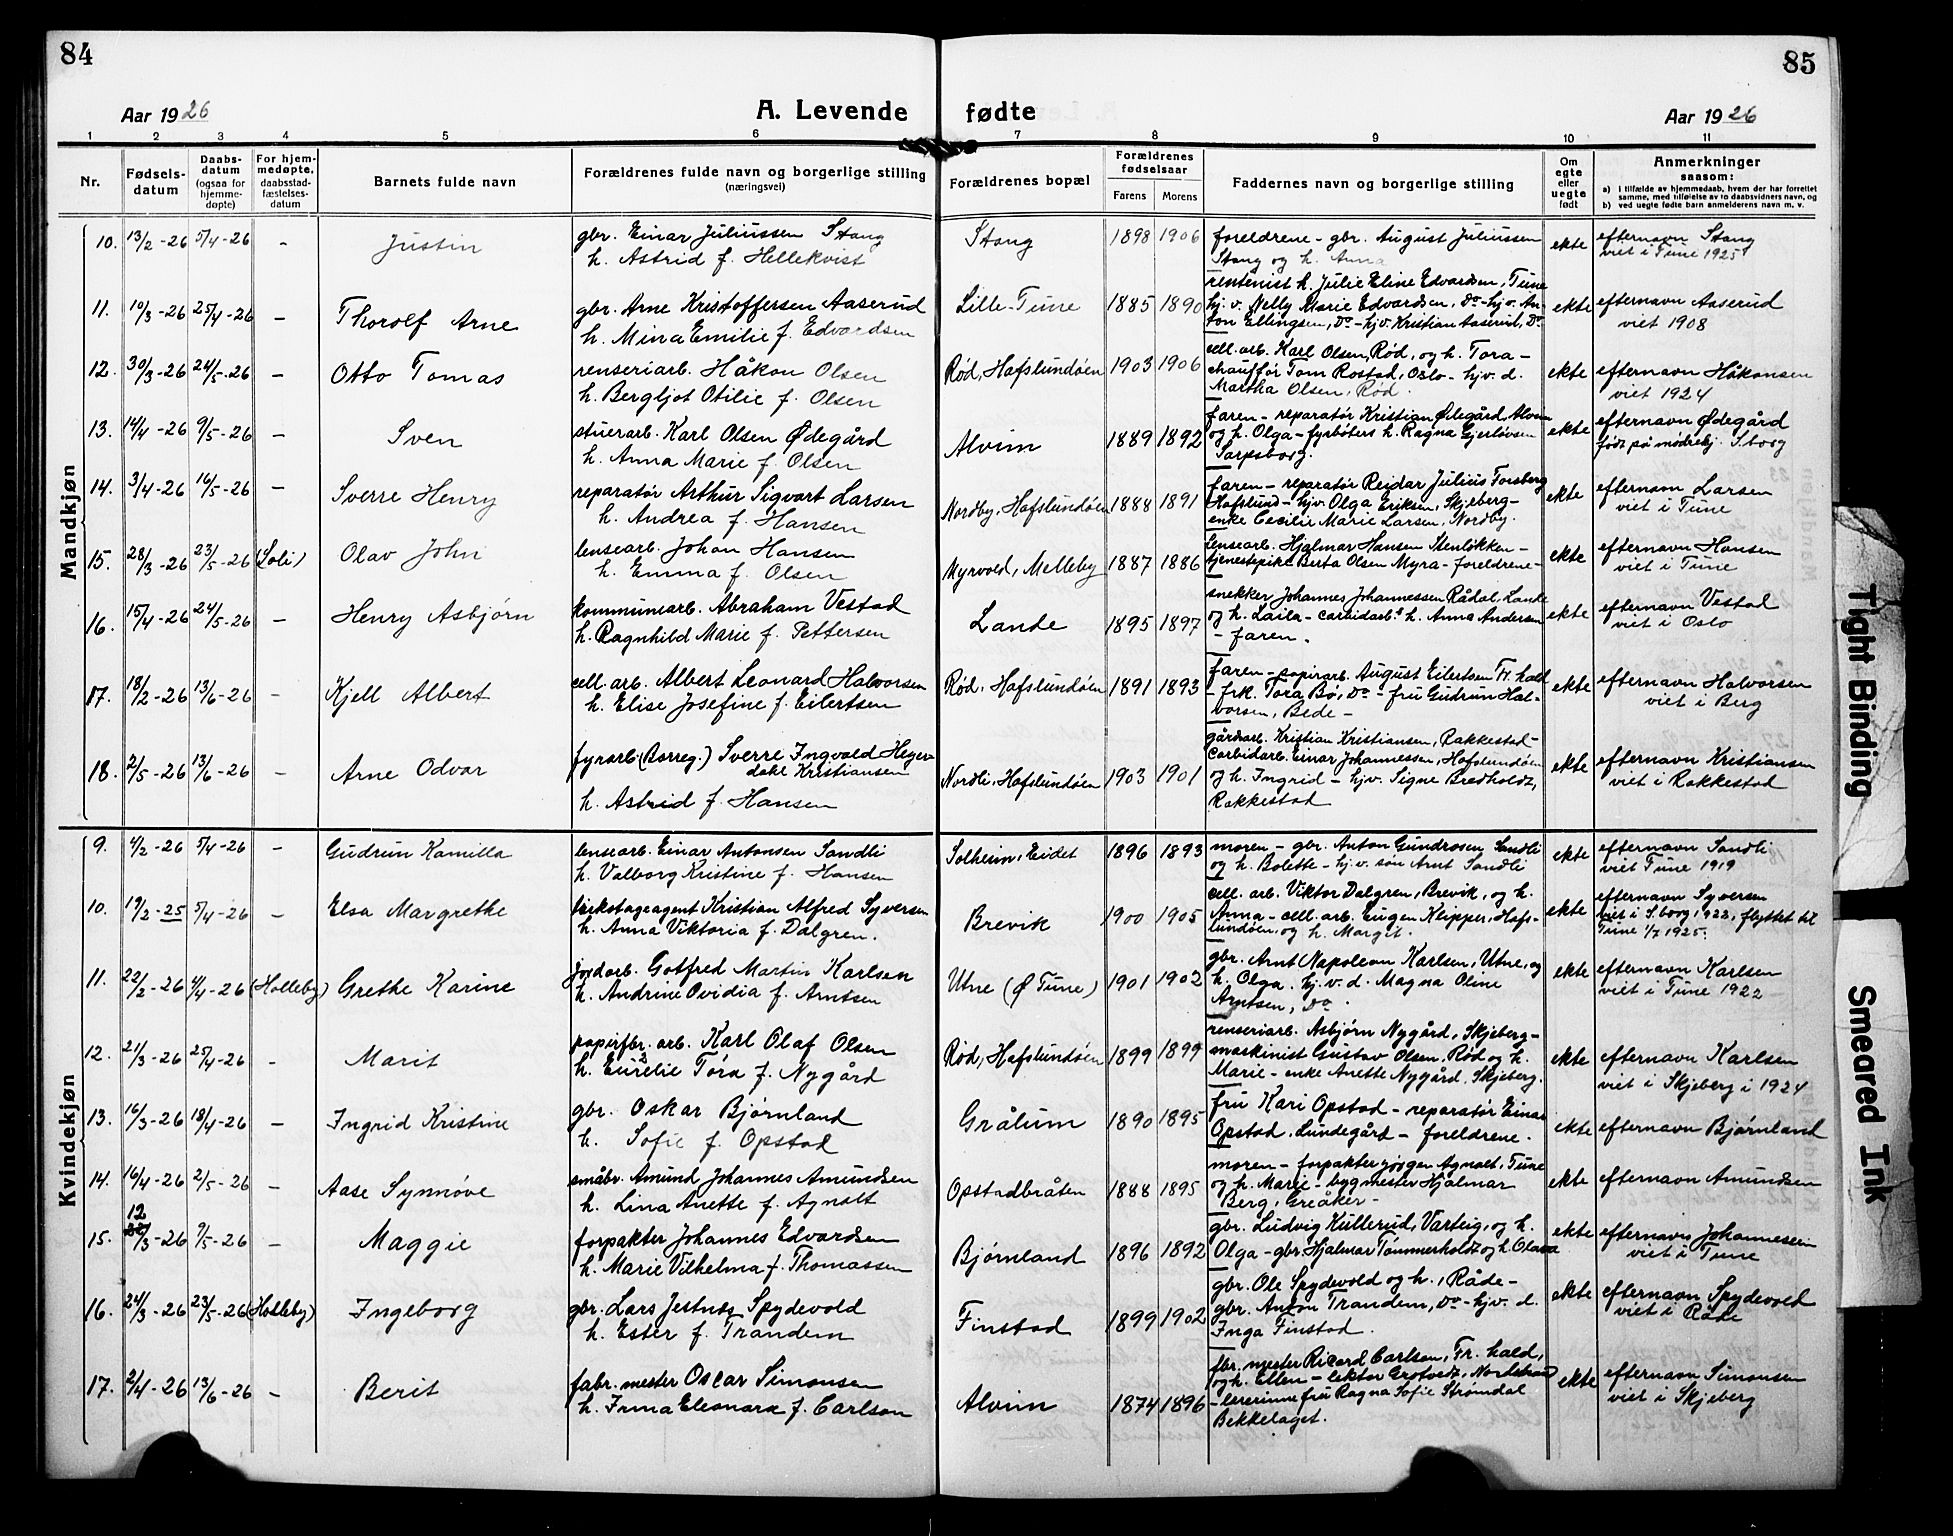 84
85
Aar 1926
A. Levende fødte
Aar 1926
1 2 3 4 5 6 7 8 9 10 11
Nr.
Fødsels-
datum
Daabs-
datum
(ogsaa for
hjemme-
døpte)
For hjem-
medøpte,
daabsstad-
fæstelses-
datum
Barnets fulde navn
Forældrenes fulde navn og borgerlige stilling
(næringsvei)
Forældrenes bopæl
Forældrenes
fødselsaar
Farens Morens
Faddernes navn og borgerlige stilling
Om
egte
eller
uegte
født
Anmerkninger
saasom:
a) i tilfælde av hjemmedaab, hvem der har forrettet
samme, med tilføielse av to daabsvidners navn, og
b) ved uegte fødte barn anmelderens navn m. v.
Mandkjøn
10. 13/2-26 5/4-26 - Justin
gbr. Einar Juliussen Stang
h. Astrid f. Hellekvist
Stang 1898 1906
foreldrene - gbr. August Juliussen
Stang og h. Anna
ekte
efternavn Stang
viet i Tune 1925
11. 10/3-26 25/4-26 - Thorolf Arne
gbr. Arne Kristoffersen Aaserud
h. Mina Emilie f. Edvardsen
Lille-Tune 1885 1890
rentenist h. Julie Eline Edvardsen, Tune
hj.v. Nelly Marie Edvardsen, Do - hj.v. An-
ton Ellingsen, Do - hjv. Kristian Aaserud, Do
ekte
efternavn Aaserud
viet 1908
12. 30/3-26 24/5-26 - Otto Tomas
renseriarb. Håkon Olsen
h. Bergljot Otilie f. Olsen
Rød, Hafslundøen 1903 1906
cell. arb. Karl Olsen, Rød, og h. Tora -
chauffør Tom Rostad, Oslo - hjv. d.
Martha Olsen, Rød.
ekte
efternavn Håkonsen
viet 1924
13. 14/4-26 9/5-26 - Sven
stuerarb. Karl Olsen Ødegård
h. Anna Marie f. Olsen
Alvim 1889 1892
faren - reparatør Kristian Ødegård, Alvim
og h. Olga - fyrbøters h. Ragna Gjerløvsen
Sarpsborg.
ekte
efternavn Ødegård
født på mødrehj. S.borg
14. 3/4-26 16/5-26 - Sverre Henry
reparatør Arthur Sigvart Larsen
h. Andrea f. Hansen
Nordby, Hafslundøen 1888 1891
faren - reparatør Reidar Julius Forsberg
Hafslund - hjv. Olga Eriksen, Skjeberg -
enke Cecilie Marie Larsen, Nordby.
ekte
efternavn Larsen
viet i Tune
15. 28/3-26 23/5-26 (Soli) Olav John
lensearb. Johan Hansen
h. Emma f. Olsen
Myrvold, Melleby 1887 1886
lensearb. Hjalmar Hansen Stenløkken -
tjenestepike Berta Olsen Myra - foreldrene -
ekte
efternavn Hansen
viet i Tune
16. 15/4-26 24/5-26 - Henry Asbjørn
kommunearb. Abraham Vestad
h. Ragnhild Marie f. Pettersen
Lande 1895 1897
snekker Johannes Johannessen Rådal, Lande
og h. Laila - carbidarb.s h. Anna Andersen
- faren.
ekte
efternavn Vestad
viet i Oslo
17. 18/2-26 13/6-26 - Kjell Albert
cell. arb. Albert Leonard Halvorsen
h. Elise Josefine f. Eilertsen
Rød, Hafslundøen 1891 1893
faren - papirarb. August Eilertsen Fr. hald
- frk. Tora Bø, Do - fru Gudrun Hal-
vorsen, Bede -
ekte
efternavn Halvorsen
viet i Berg
18. 2/5-26 13/6-26 - Arne Odvar
fyrarb. (Borreg.) Sverre Ingvald Heger-
dahl Kristiansen
h. Astrid f. Hansen
Nordli, Hafslundøen 1903 1901
gårdarb. Kristian Kristiansen, Rakkestad -
carbidarb. Einar Johannessen, Hafslundøen
og h. Ingrid - hjv. Signe Bredholdt,
Rakkestad
ekte
efternavn Kristiansen
viet i Rakkestad
Kvindekjøn
9. 4/2-26 5/4-26 - Gudrun Kamilla
lensearb. Einar Antonsen Sandli
h. Valborg Kristine f. Hansen
Solheim, Eidet 1896 1893
moren - gbr. Anton Gundrosen Sandli
og h. Bolette - hj.v. søn Arnt Sandli
ekte
efternavn Sandli
viet Tune 1919
10. 19/2-25 5/4-26 - Elsa Margrethe
trikotageagent Kristian Alfred Syversen
h. Anna Viktoria f. Dalgren.
Brevik 1900 1905
cell. arb. Viktor Dalgren, Brevik, og h.
Anna - cell. arb. Eugen Klipper, Hafs-
lundøen, og h. Margit.
ekte
efternavn Syversen
viet i S.borg 1922, flyttet til
Tune 1/7 1925.
11. 22/2-26 4/4-26 (Holleby) Grethe Karine
jordarb. Gotfred Martin Karlsen
h. Andrine Ovidia f. Arntsen
Utne (Ø Tune) 1901 1902
gbr. Arnt Napoleon Karlsen, Utne, og
h. Olga. hj.v. d. Magna Oline
Arntsen, Do.
ekte
efternavn Karlsen
viet i Tune 1922
12. 21/3-26 25/4-26 - Marit
papirfbr. arb. Karl Olaf Olsen
h. Eurelie Tora f. Nygård
Rød, Hafslundøen 1899 1899
renseriarb. Asbjørn Nygård, Skjeberg -
maskinist Gustav Olsen, Rød og h.
Marie - enke Anette Nygård, Skjeberg.
ekte
efternavn Karlsen
viet i Skjeberg i 1924
13. 16/3-26 18/4-26 - Ingrid Kristine
gbr. Oskar Bjørnland
h. Sofie f. Opstad
Grålum 1890 1895
fru Kari Opstad - reparatør Einar
Opstad, Lundegård - foreldrene.
ekte
efternavn Bjørnland
14. 16/4-26 2/5-26 - Aase Synnøve
småbr. Amund Johannes Amundsen
h. Lina Anette f. Agnalt
Opstadbråten 1888 1895
moren - forpakter Jørgen Agnalt, Tune
og h. Marie - bygmester Hjalmar
Berg, Greåker -
ekte
efternavn Amundsen
15. 12/3-26 9/5-26 - Maggie
forpakter Johannes Edvardsen
h. Marie Vilhelma f. Thomassen
Bjørnland 1896 1892
gbr. Ludvig Kullerud, Varteig, og h.
Olga - gbr. Hjalmar Tømmerholdt og h. Olava
ekte
efternavn Johannesen
viet i Tune
16. 24/3-26 23/5-26 (Holleby) Ingeborg
gbr. Lars Jestnæs Spydevold
h. Ester f. Trandem
Finstad 1899 1902
gbr. Ole Spydevold og h., Råde -
gbr. Anton Trandem, Do - hj.v. d.
Inga Finstad.
ekte
efternavn Spydevold
viet i Råde
17. 2/4-26 13/6-26 - Berit
fabr. mester Oscar Simonsen
h. Irma Eleonora f. Carlson
Alvim 1874 1896
fbr. mester Ricard Carlson, Fr. hald,
og h. Ellen - lektor Grotvedt, Nordstrand
- lærerinne fru Ragna Sofie Strømdal
Bekkelaget.
ekte
efternavn Simonsen
viet i Skjeberg
Tight Binding
Smeared Ink